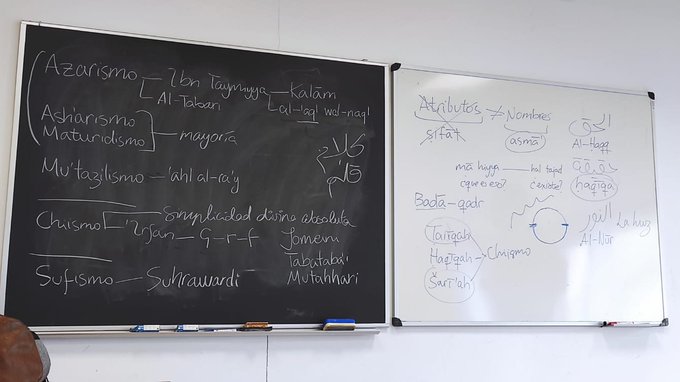 Azarismo
Ibn Taymiyya
Al-Tabari
Kalām
al-'aql wal-naql
Ash'arismo
Maturidismo
mayoría
كلام
Mu'tazilismo — 'ahl al-ra'y
Chiismo
Simplicidad divina absoluta
'Irfān — ʕ-r-f
Jomeini
Tabataba'i
Mutahhari
Sufismo — Suhrawardi
Atributos ≠ Nombres
ṣifāt
asmā'
الحق
Al-Ḥaqq
mā hiyya
¿que es eso?
¿existe?
حقيقة
ḥaqīqa
Badā – qadr
Ṭarīqah
Ḥaqīqah
Šarī'ah
Chiismo
النور
La luz
Al-Nūr